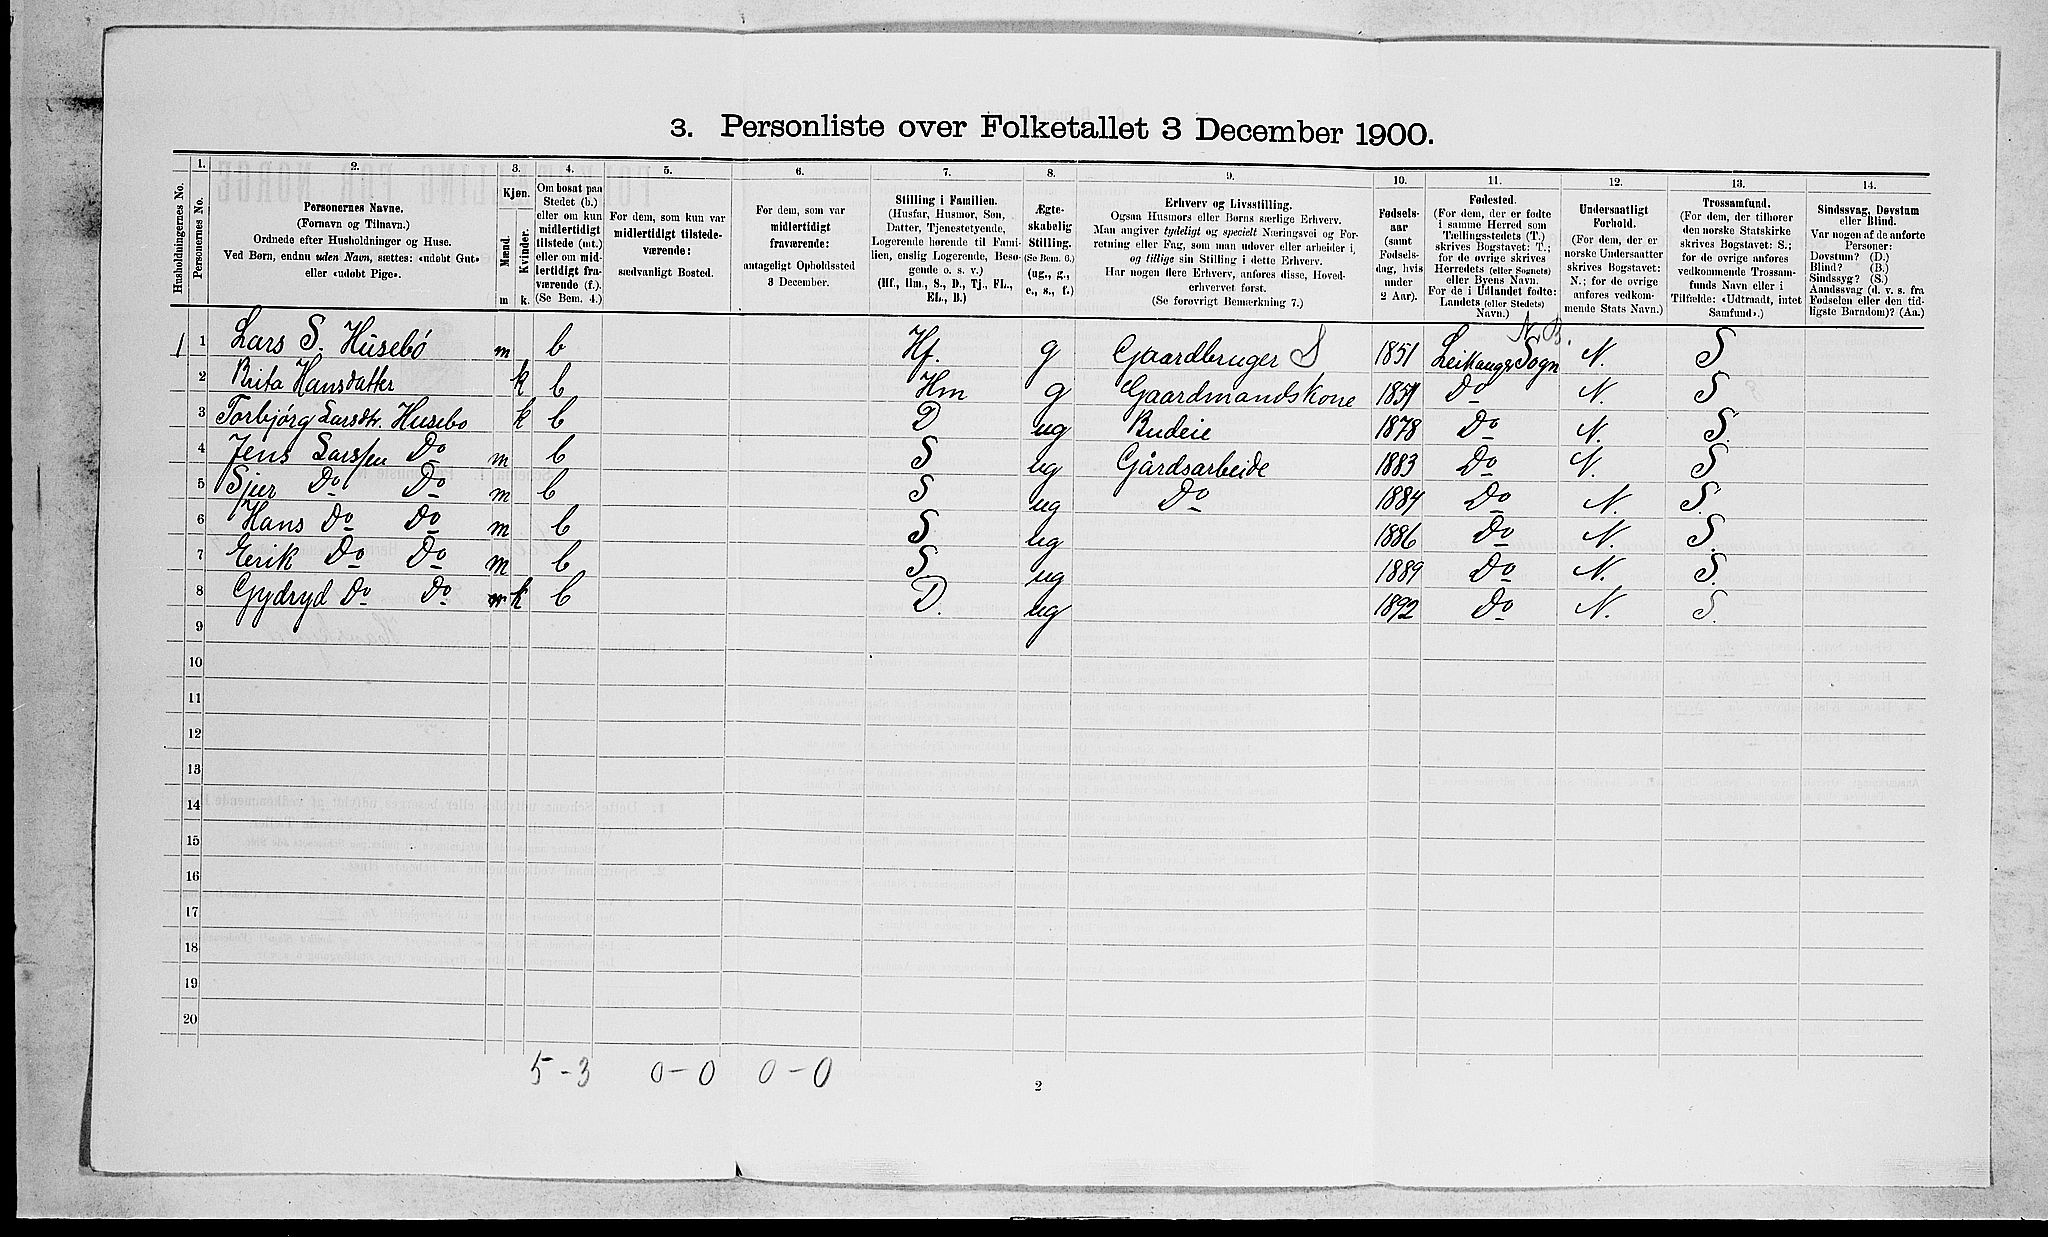 3. Personliste over Folketallet 3 December 1900.
1. 2. 3. 4. 5. 6. 7. 8. 9. 10. 11. 12. 13. 14.
Husholdningernes No.
Personernes No.
Personernes Navne.
(Fornavn og Tilnavn.)
Ordnede efter Husholdninger og Huse.
Ved Børn, endnu uden Navn, sættes: «udøbt Gut»
eller «udøbt Pige».
Kjøn.
Mænd.
Kvinder.
m
k.
Om bosat paa
Stedet (b.)
eller om kun
midlertidigt
tilstede (mt.)
eller om mid-
lertidigt fra-
værende (f.).
(Se Bem. 4.)
For dem, som kun var
midlertidigt tilstede-
værende:
sædvanligt Bosted.
For dem, som var
midlertidigt
fraværende:
antageligt Opholdssted
3 December.
Stilling i Familien.
(Husfar, Husmor, Søn,
Datter, Tjenestetyende,
Logerende hørende til Fami-
lien, enslig Logerende, Besø-
gende o. s. v.)
(Hf., Hm., S., D., Tj., FL.,
EL., B.)
Ægte-
skabelig
Stilling.
(Se Bem. 6.)
(ug., g.,
e., s., f.)
Erhverv og Livsstilling.
Ogsaa Husmors eller Børns særlige Erhverv.
Man angiver tydeligt og specielt Næringsvei og For-
retning eller Fag, som man udover eller arbeider i,
og tillige sin Stilling i dette Erhverv.
Har nogen flere Erhverv, anføres disse, Hoved-
erhvervet først.
(Se forøvrigt Bemærkning 7.)
Fødsels-
aar
(samt
Fødsels-
dag, hvis
under
2 Aar).
Fødested.
(For dem, der er fødte
i samme Herred som
Tællingsstedets (T.)
skrives Bogstavet: T.;
for de øvrige skrives
Herredets (eller Sognets)
eller Byens Navn.
For de i Udlandet fødte:
Landets (eller Stedets)
Navn.)
Undersaatligt
Forhold.
(For dem, der er
norske Undersaatter
skrives Bogstavet:
N.; for de øvrige
anføres vedkom-
mende Stats Navn.)
Trossamfund.
(For dem, der tilhører
den norske Statskirke
skrives Bogstavet: S.;
for de øvrige anføres
vedkommende Trossam-
funds Navn eller i
Tilfælde: «Udtraadt, intet
Samfund».)
Sindssvag, Døvstum
eller Blind.
Var nogen af de anførte
Personer:
Døvstum? (D.)
Blind? (B.)
Sindssyg? (S.)
Aandssvag (d. v. s. fra
Fødselen eller den tid-
ligste Barndom)? (Aa.)
N. B.
1 1 Lars S. Húsebó m b Hf. g Gaardbruger S 1851 Leikanger Sogn N. S
2 Brita Hansdatter k b Hm g Gaardmandskone 1851 Do N. S
3 Torbjörg Larsdtr. Husebo k b D ug Budeie 1878 Do N. S.
4 Jens Larssen Do m b S ug Gårdsarbeide 1883 Do N. S
5 Sjur Do Do m b S ug Do 1884 Do N. S.
6 Hans Do Do m b S ug 1886 Do N. S.
7 Erik Do Do m b S. ug 1889 Do N. S.
8 Gydryd Do Do k b D. ug 1892 Do N. S.
9
10
11
12
13
14
15
16
17
18
19
20
5-3 0-0 0-0
2